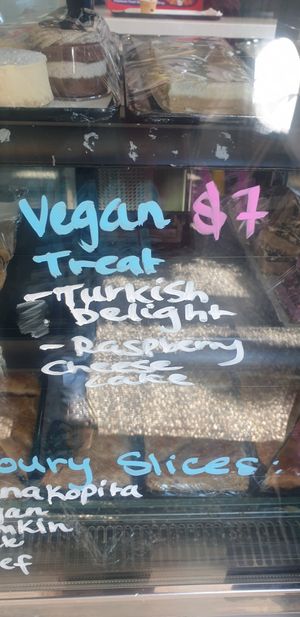 Vegan $7
Treat
- Turkish
Delight
- Raspberry
Cheese
cake
oury Slices:
nakopita
gan
mkin
ef